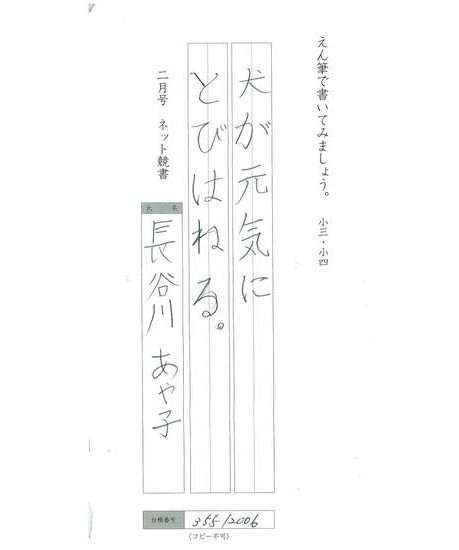 えん筆で書いてみましょう。 小三・小四
犬が元気に
とびはねる。
二月号 ネット競書
氏名
長谷川 あや子
台格番号 355/2006
(コピー不可)